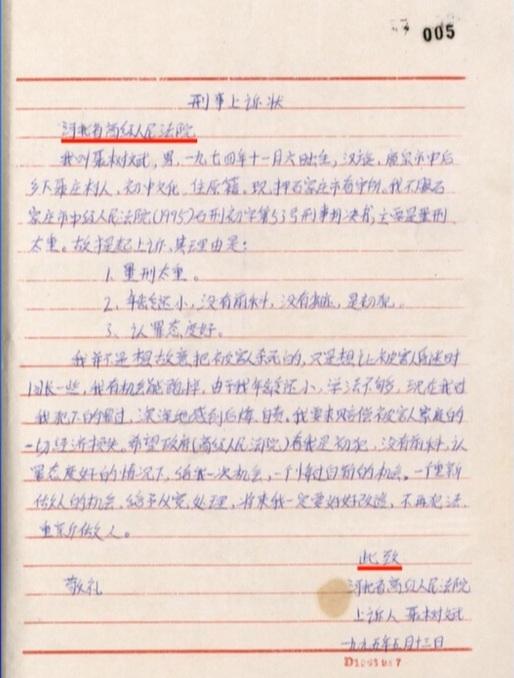 005
刑事上诉状
河北省高级人民法院
我叫聂树斌,男,一九七四年十一月六日出生,汉族,鹿泉市申后
乡下聂庄村人,初中文化,住原籍,现押石家庄市看守所,我不服石
家庄市中级人民法院(1995)石刑初字第53号刑事判决书,主要是量刑
太重。故提起上诉,其理由是:
1. 量刑太重。
2. 年龄还小,没有前科,没有劣迹,是初犯。
3. 认罪态度好。
我并不是想故意把被害人杀死的,只是想让被害人昏迷时
间长一些,我有机会能跑掉,由于我年龄还小,学法不够,现在我对
我犯下的罪过,深深地感到后悔,自责。我要求赔偿被害人家庭的
一切经济损失。希望政府(高级人民法院)看我是初犯,没有前科,认
罪态度好的情况下,给我一次机会,一个悔过自新的机会。一个重新
做人的机会,给予从宽处理,将来我一定要好好改造,不再犯法,
重新做人。
此致
敬礼
河北省高级人民法院
上诉人 聂树斌
一九九五年五月十三日